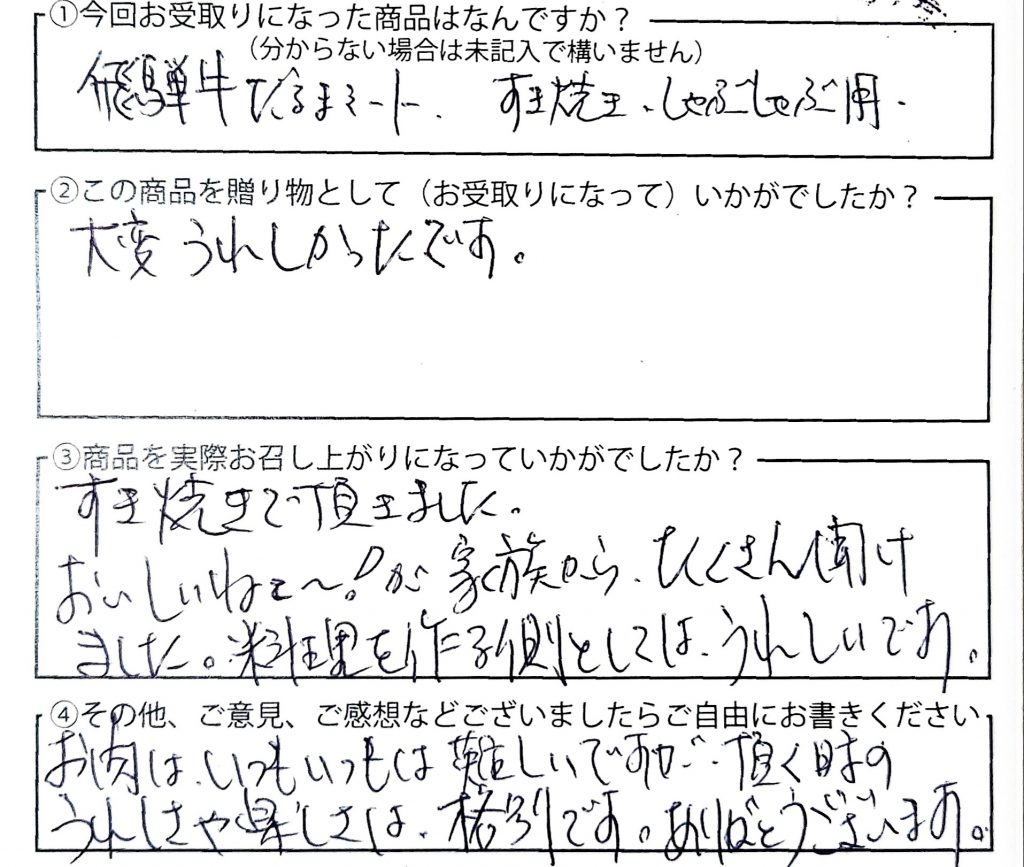 ①今回お受取りになった商品はなんですか？
（分からない場合は未記入で構いません）
飛騨牛 だるまミート. すき焼き・しゃぶしゃぶ用.
②この商品を贈り物として（お受取りになって）いかがでしたか？
大変うれしかったです。
③商品を実際お召し上がりになっていかがでしたか？
すき焼きで頂きました。
おいしいねェ〜!が家族から、たくさん聞け
ました。料理を作る側としては、うれしいです。
④その他、ご意見、ご感想などございましたらご自由にお書きください
お肉は、いつもいつもは難しいですが、頂く時の
うれしさや楽しさは、格別です。ありがとうございます。